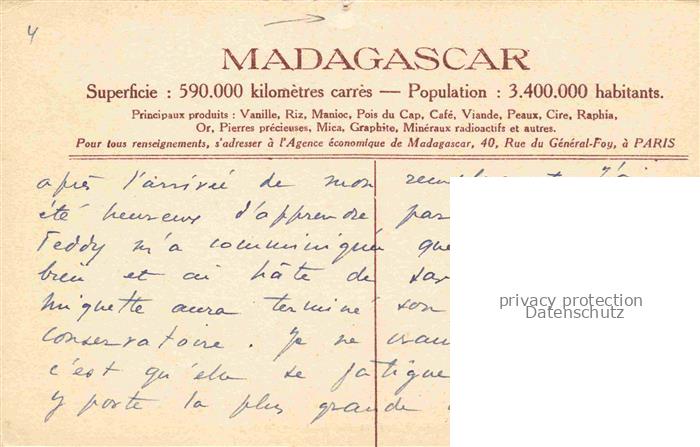 4
MADAGASCAR
Superficie : 590.000 kilomètres carrès — Population : 3.400.000 habitants.
Principaux produits : Vanille, Riz, Manioc, Pois du Cap, Café, Viande, Peaux, Cire, Raphia,
Or, Pierres précieuses, Mica, Graphite, Minéraux radioactifs et autres.
Pour tous renseignements, s'adresser à l'Agence économique de Madagascar, 40, Rue du Général-Foy, à PARIS
après l'arrivée de mon
été heureux d'apprendre par
Teddy m'a communiqué que
bien et ai hâte de
Miquette aura terminé son
conservatoire. je ne
c'est qu'elle se fatigue
y porte la plus grande
privacy protection
Datenschutz